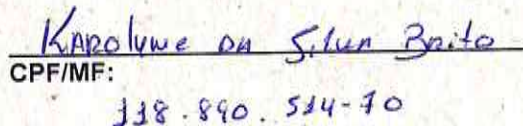 Karolyne da Silva Brito
CPF/MF:
118.890.514-70